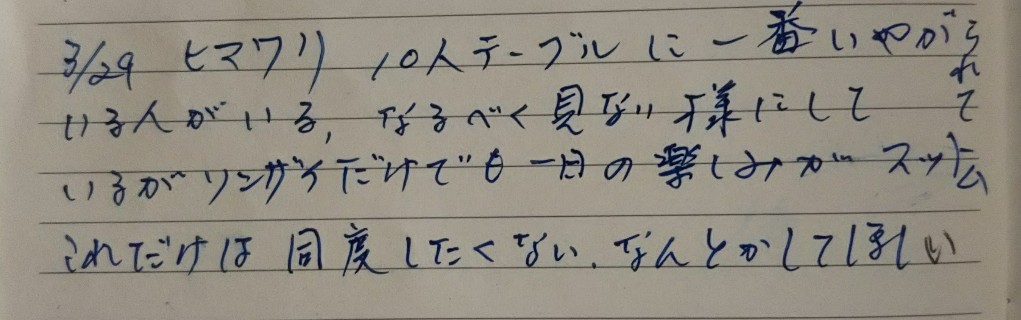 3/29 ヒマワリ 10人テーブルに一番いやがられて
いる人がいる, なるべく見ない様にして
いるがリンザイだけでも一日の楽しみがスッ飛ム
これだけは同度したくない、なんとかしてほしい